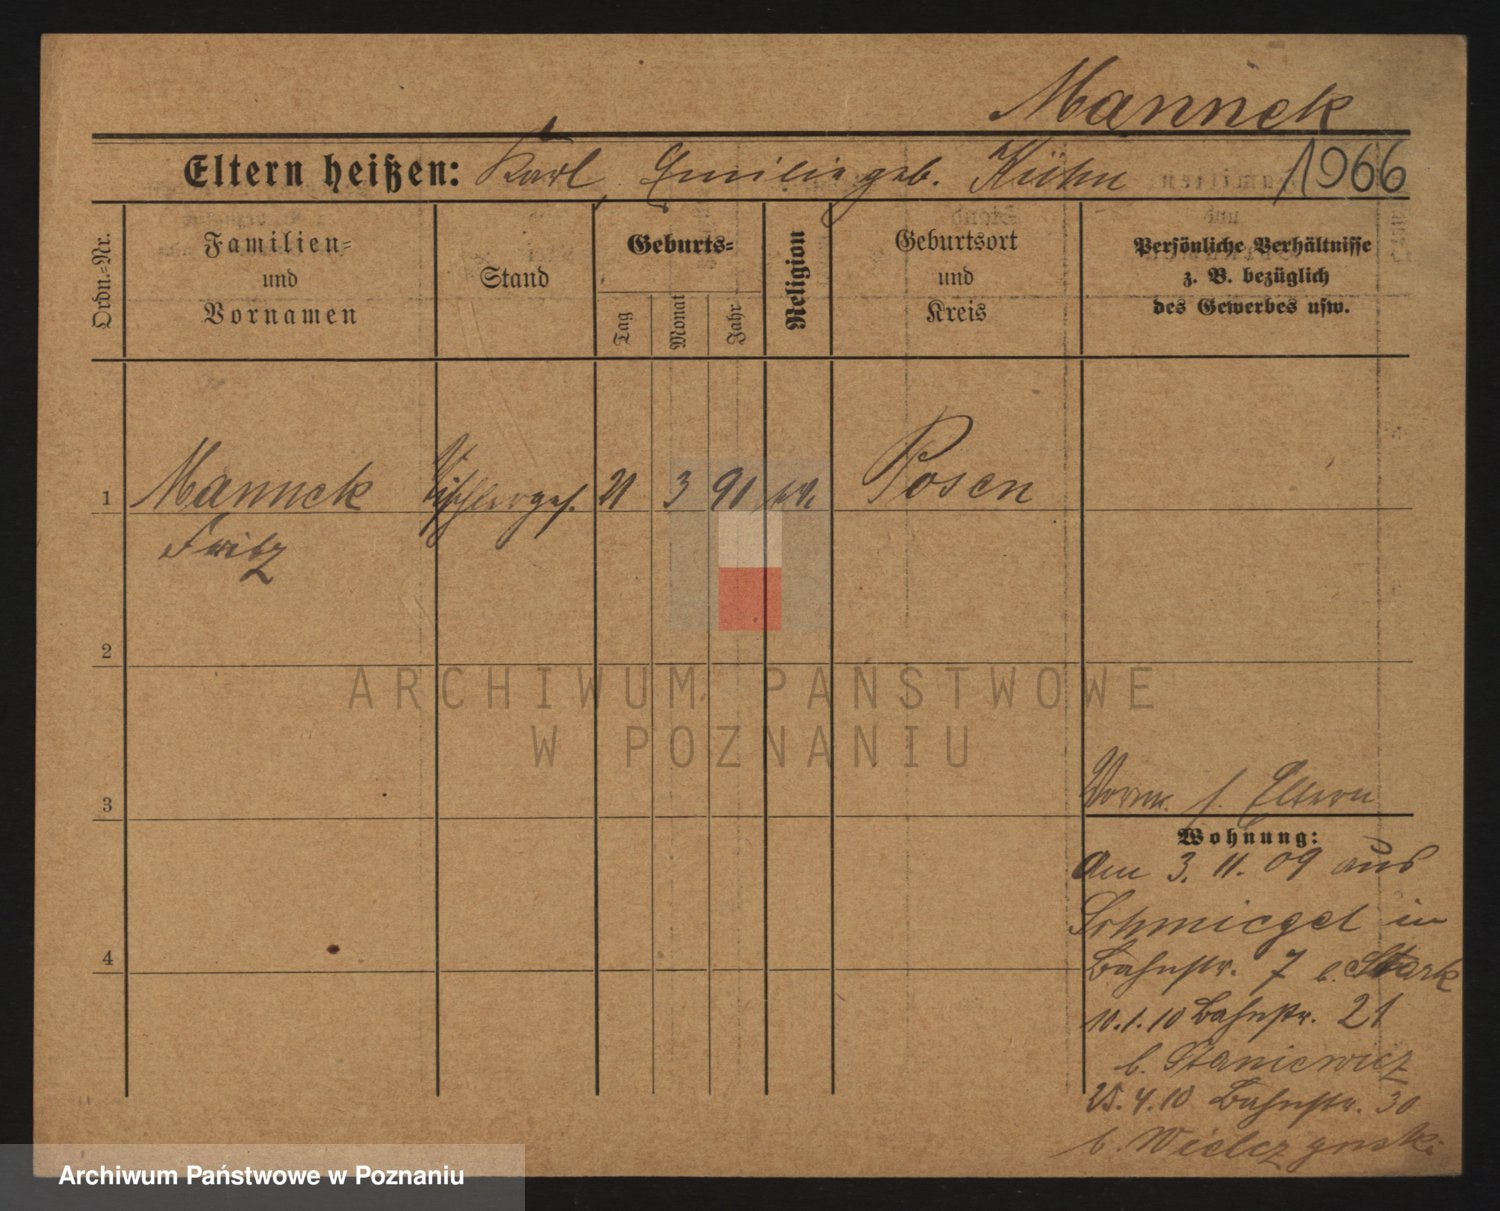 Mannek
Eltern heißen: Karl, Emilie geb. Kühn 1966
Ordn.-Nr.
Familien-
und
Vornamen
Stand
Geburts-
Tag
Monat
Jahr
Religion
Geburtsort
und
Kreis
Persönliche Verhältnisse
z. B. bezüglich
des Gewerbes usw.
1 Mannek Tischlerges. 21 3 91 Posen
Fritz
2
ARCHIWUM PAŃSTWOWE
W POZNANIU
3
Vorm. s. Eltern
Wohnung:
am 3. 11. 09 aus
Schmiegel in
Bahnstr. 7 b. Stark
4
10.1.10 Bahnstr. 21
b. Staniewicz
25.4.10 Bahnstr. 30
b.
Archiwum Państwowe w Poznaniu